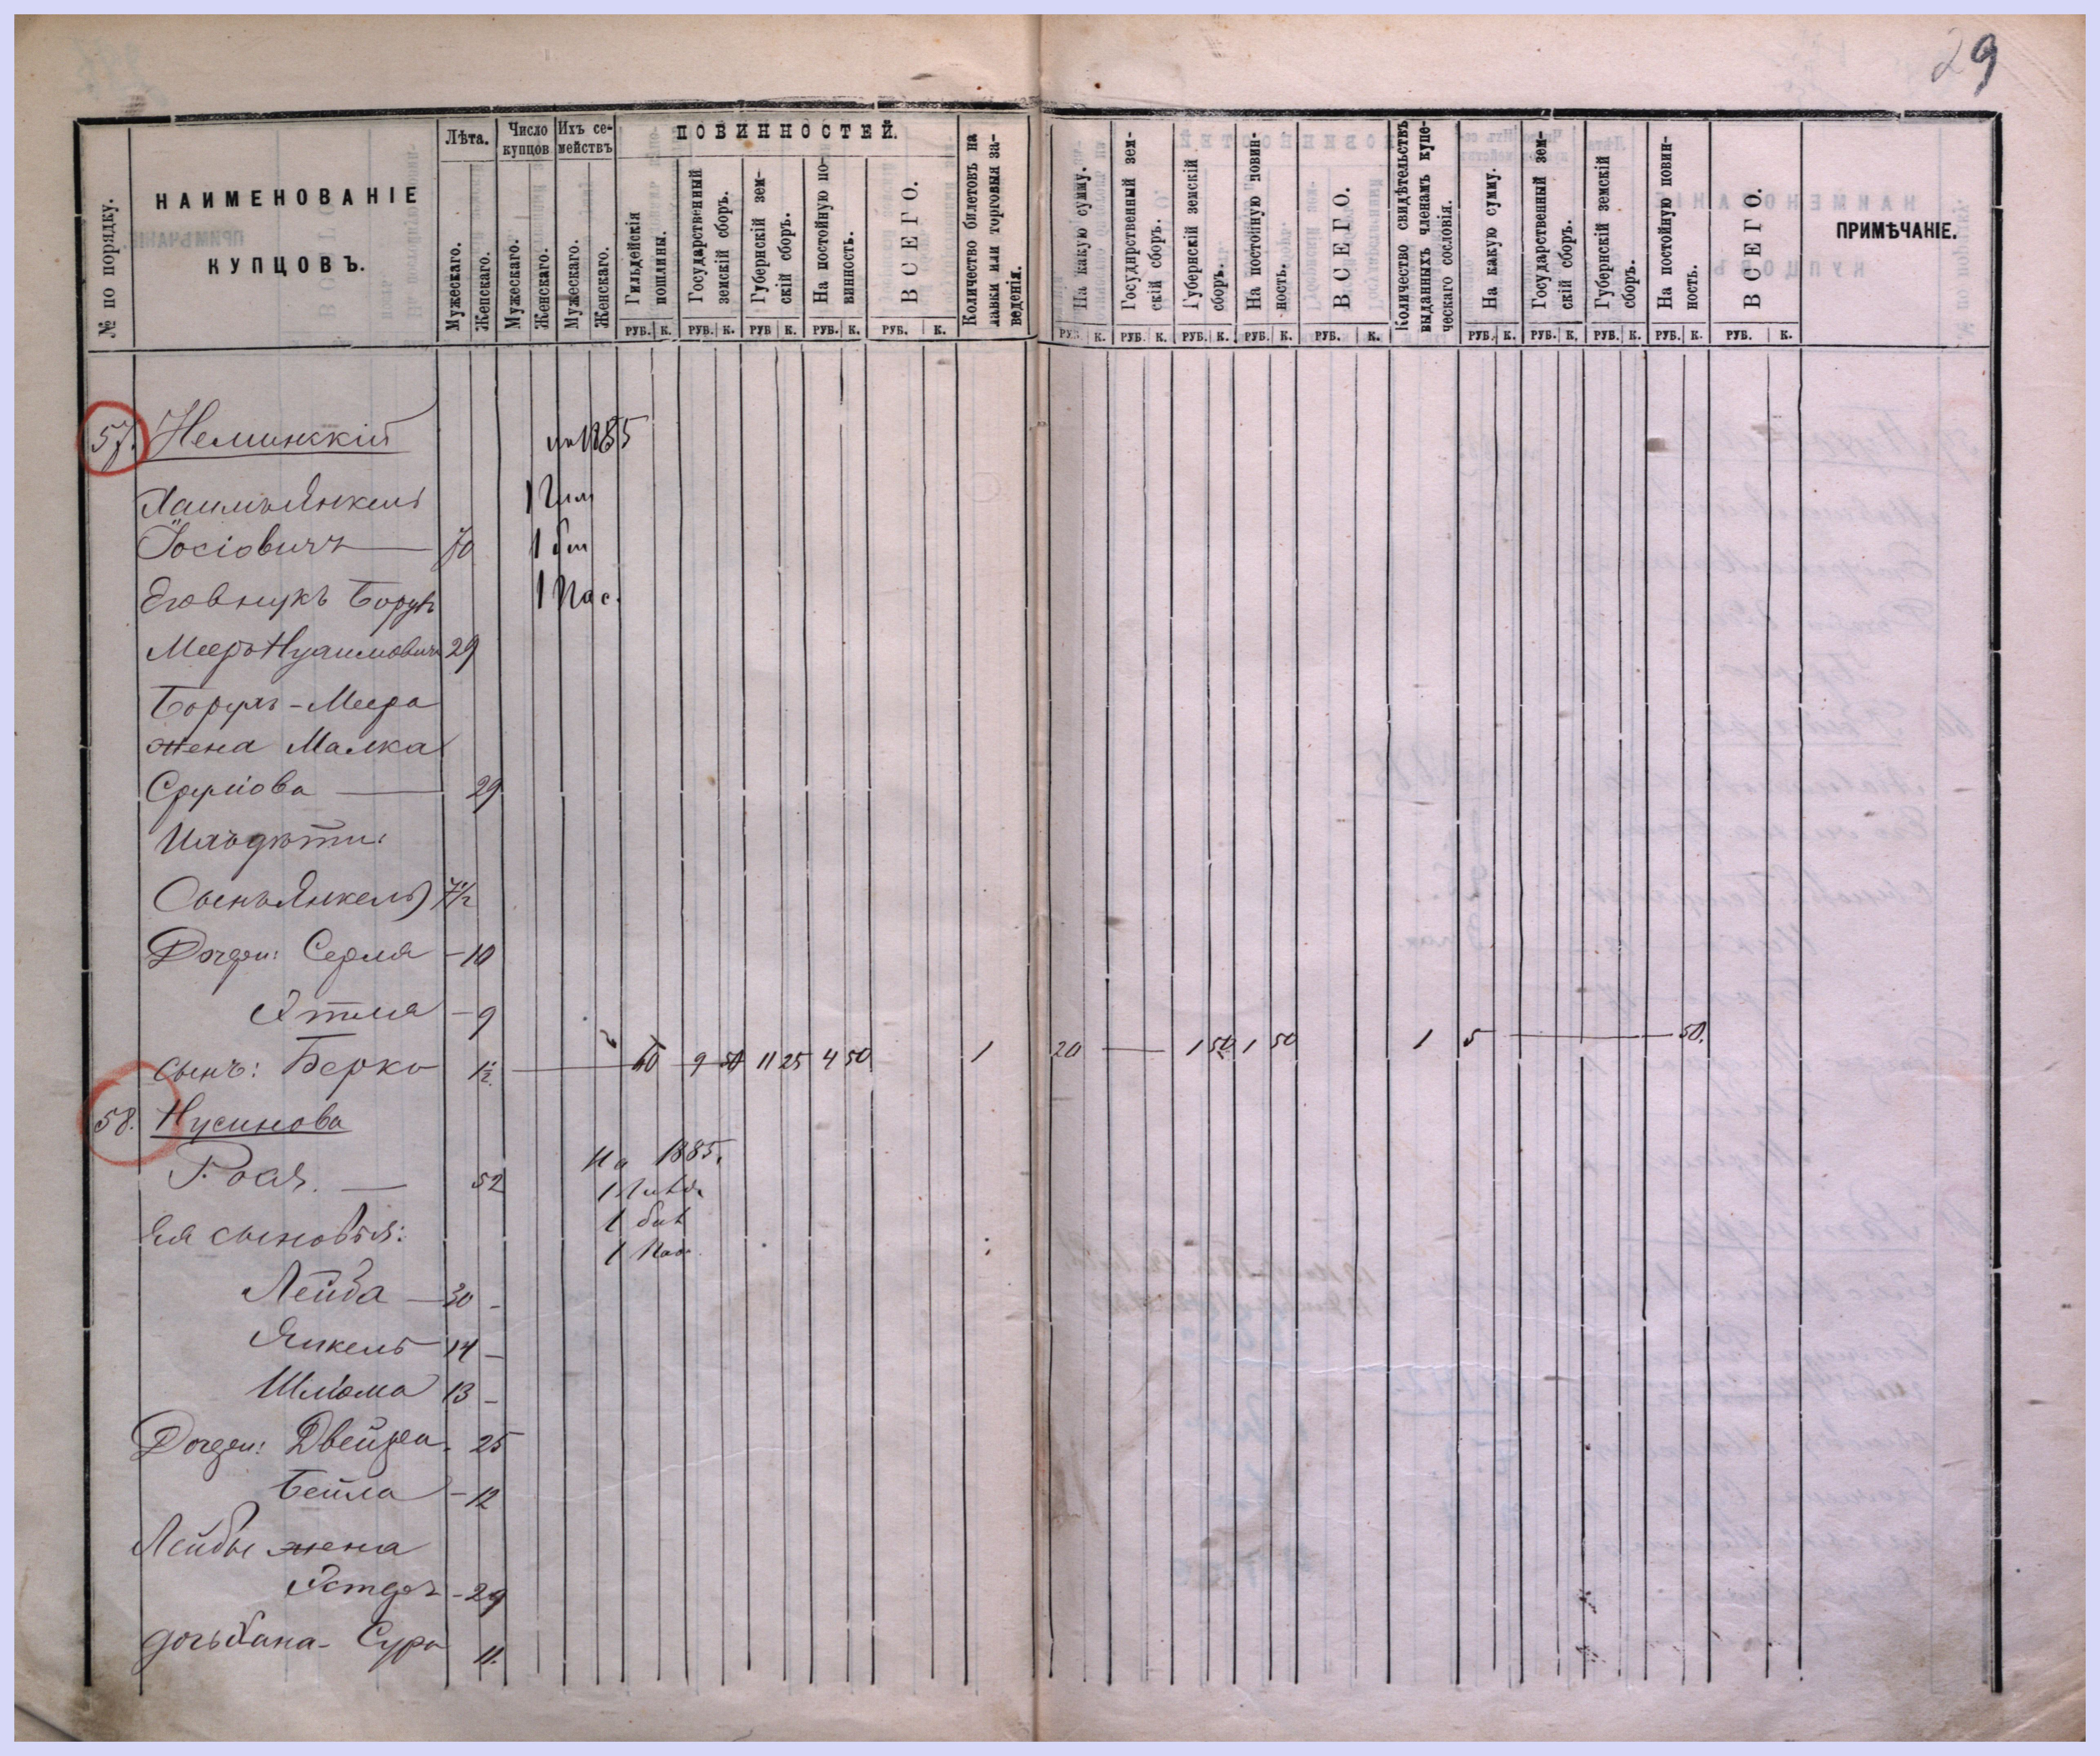 29
№ по порядку.
НАИМЕНОВАНІЕ
КУПЦОВЪ.
Лѣта.
Мужескаго.
Женскаго.
Число купцов
Мужескаго.
Женскаго.
Ихъ се-
мействъ
Мужескаго.
Женскаго.
ПОВИННОСТЕЙ.
Гильдейскія
пошлины.
Государственный
земскій сборъ.
Губернскій зем-
скій сборъ.
На постойную по-
винность.
ВСЕГО.
Количество билетовъ на
лавки или торговыя за-
веденія.
На какую сумму.
Государственный зем-
скій сборъ.
Губернскій земскій
сборъ.
На постойную повин-
ность.
ВСЕГО.
Количество свидѣтельствъ
выданныхъ членамъ купе-
ческаго сословія.
На какую сумму.
Государственный зем-
скій сборъ.
Губернскій земскій
сборъ.
На постойную повин-
ность.
ВСЕГО.
ПРИМѢЧАНІЕ.
РУБ. К. РУБ. К. РУБ К. РУБ. К. РУБ. К. РУБ. К. РУБ. К. РУБ. К. РУБ. К. РУБ. К. РУБ. К. РУБ. К. РУБ. К. РУБ. К. РУБ. К.
57. Неминскій на 1885
Хаимъ Янкель 1 Гил
Іосіовичъ — 70 1 бил
Его внукъ Борухъ 1 Пас.
Мееръ Нухимовичъ 29
Борухъ-Меера
жена Малка
Сруліова — 29
Ихъ дѣти:
Сынъ Янкель 7 1/2
Дочери: Серля - 10
Этля - 9
сынъ: Берко 1 1/2 — 60 9 50 11 25 4 50 1 20 — 1 50 1 50 1 5 — 50.
58. Нусинова
Рося. — 52 На 1885.
1 бил
1 Пас.
Ея сыновья:
Лейба — 30 -
Янкель 14 -
Шліома 13 -
Дочери: Двейра. 25
Бейла - 12
Лейбы жена
Эстеръ - 29
дочь Хана-Сура 11.